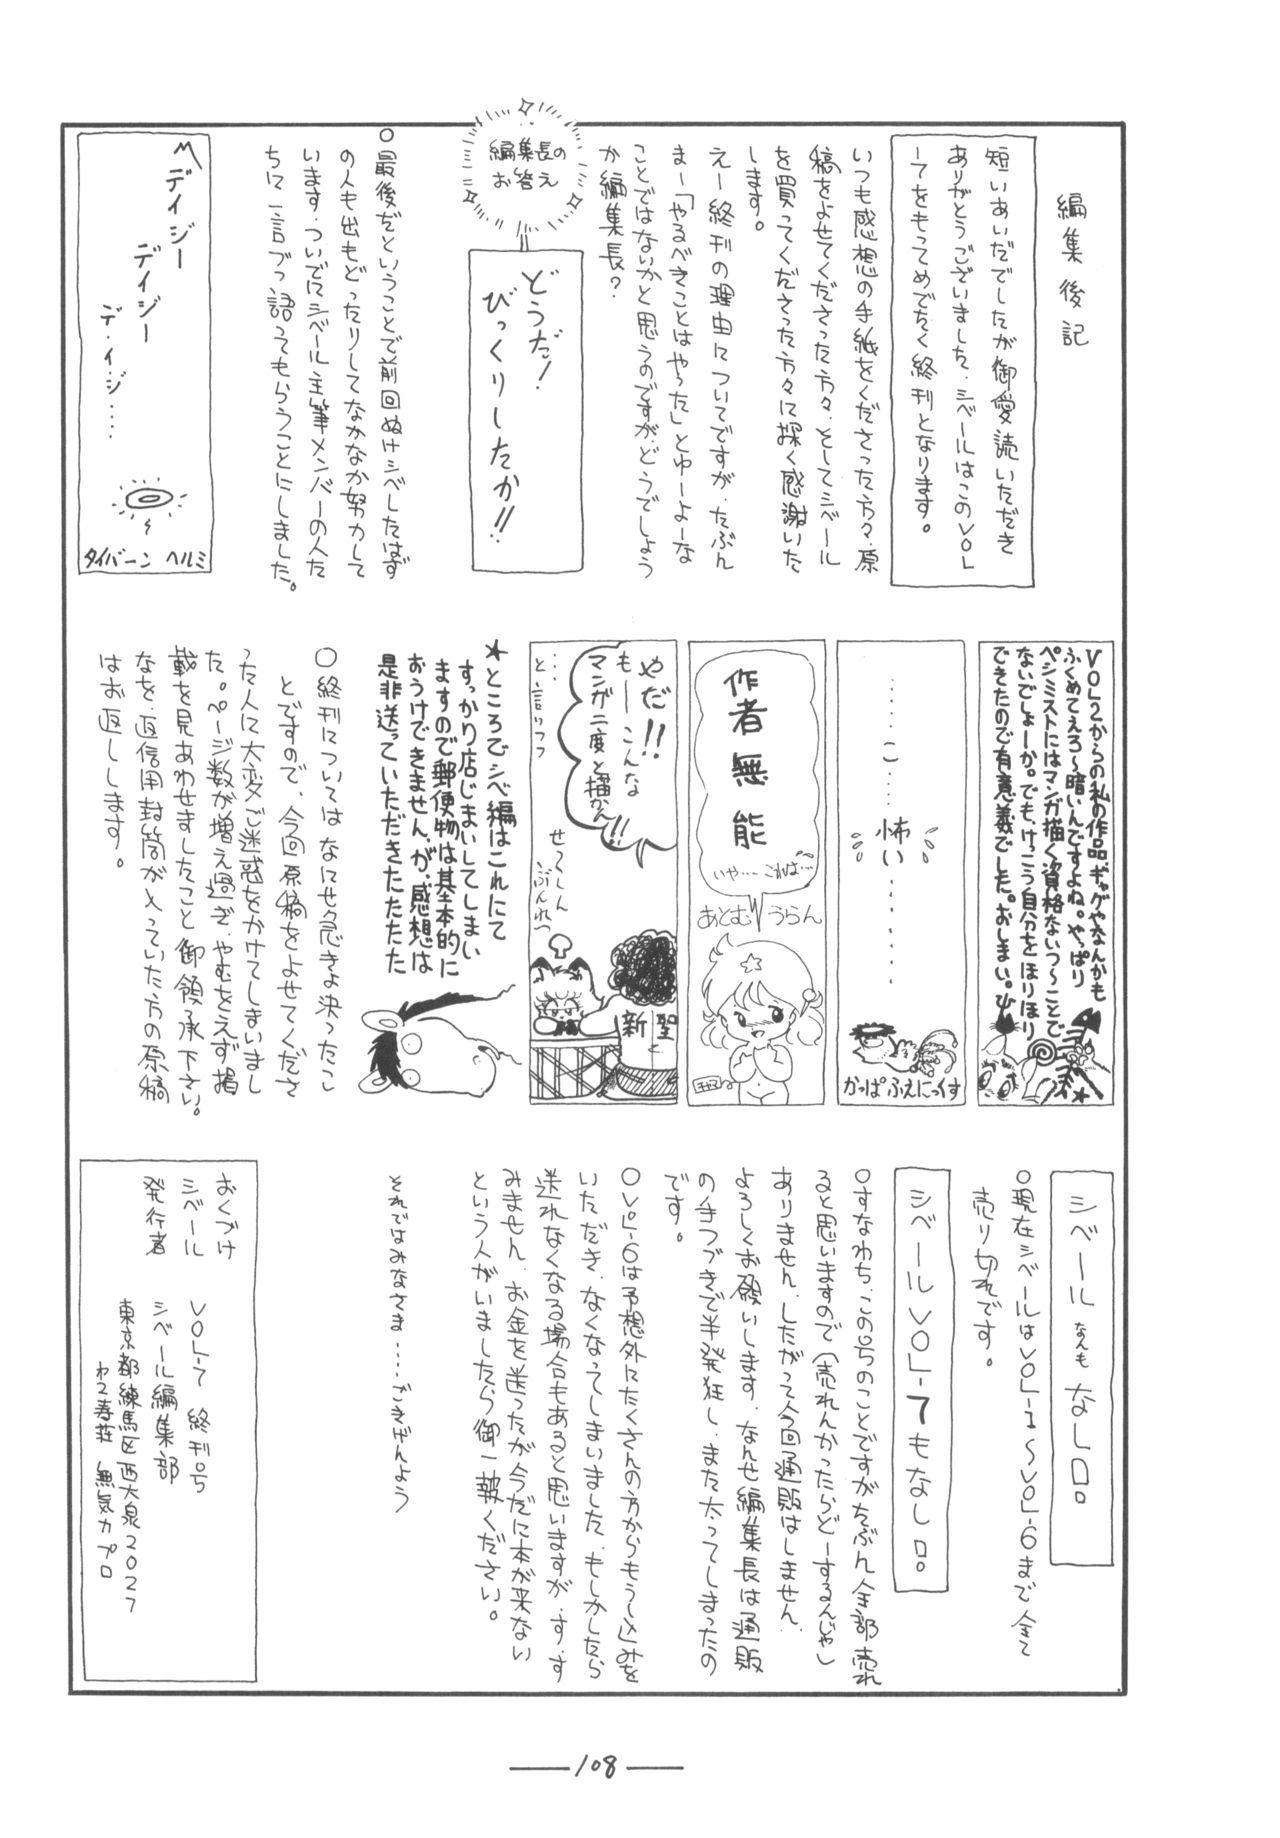 編集後記
短いあいだでしたが御愛読いただき
ありがとうございました.シベールはこのVOL
ーてをもってめでたく終刊となります。
いつも感想の手紙をくださった方々.原
稿をよせてくださった方々、そしてシベール
を買ってくださった方々に深く感謝いた
します。
えー終刊の理由についてですが、たぶん
まー「やるべきことはやった」とゆーよーな
ことではないかと思うのですが、どうでしょう
か編集長?
編集長の
お答え
どうだ!
びっくりしたか!!
○最後だということで前回ぬけシベしたはず
の人も出もどったりしてなかなか努力して
います.ついでにシベール主筆メンバーの人た
ちに一言づつ語ってもらうことにしました。
デイジー
デイジー
デ.イ.ジ.....
タイバーン ヘルミ
VOL2からの私の作品、ギャグやなんかも
ふくめてえろ〜暗いんですよね。やっぱり
ペシミストにはマンガ描く資格ないつ〜ことで
ないでしょーか。でも、けっこう自分をほりほり
できたので有意義でした。おしまい。
........こ..........
怖い
かっぱ ふぇにっくす
作者無能
いや....これは...
あとむ うらん
やだ!!
もーーこんな
マンガ二度と
描かん!!
...と言いつつ
せ〜しん
ぶんれつ
新聖
★ところでシベ編はこれにて
すっかり店じまいしてしまい
ますので郵便物は基本的に
おうけできません.が、感想は
是非送っていただきたたたた
○終刊については なにせ急きょ決ったこ
とですので、今回原稿をよせてくださ
った人に大変ご迷惑をかけてしまいまし
た。ページ数が増え過ぎ、やむをえず掲
載を見あわせましたこと 御領承下さい。
なを、返信用封筒が入っていた方の原稿
はお返しします。
シベールなんもなし□。
○現在シベールはVOL-1〜VOL-6まで全て
売り切れです。
シベールVOL-7もなし□。
○すなわち、この号のことですがたぶん全部売れ
ると思いますので(売れんかったらどーするんじゃ)
ありません.したがって今回通販はしません.
よろしくお願いします.なんせ編集長は通販
の手つづきで半発狂し、また太ってしまったの
です。
○VOL-6は予想外にたくさんの方からもうし込みを
いただき、なくなってしまいました.もしかしたら
送れなくなる場合もあると思いますが.す.す
みません.お金を送ったが今だに本が来ない
という人がいましたら御一報ください。
それではみなさま.....ごきげんよう
おくづけ
シベール VOL-7 終刊号
発行者 シベール編集部
東京都練馬区西大泉2027
寿荘 無気力プロ
108